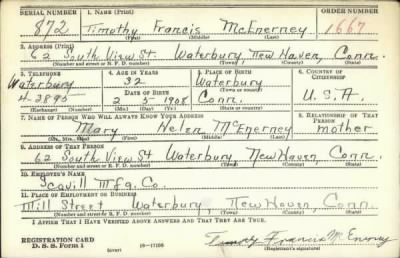 SERIAL NUMBER 1. NAME (Print) ORDER NUMBER
872 Timothy Francis McEnerney 1667
(First) (Middle) (Last)
2. ADDRESS (Print)
62 South View St. Waterbury New Haven, Conn.
(Number and street or R. F. D. number) (Town) (County) (State)
3. TELEPHONE 4. AGE IN YEARS 5. PLACE OF BIRTH 6. COUNTRY OF CITIZENSHIP
Waterbury 32 Waterbury
4-3895 DATE OF BIRTH (Town or county)
2 5 1908 Conn. U.S.A.
(Exchange) (Number) (Mo.) (Day) (Yr.) (State or country)
7. NAME OF PERSON WHO WILL ALWAYS KNOW YOUR ADDRESS 8. RELATIONSHIP OF THAT PERSON
Mary Helen McEnerney mother
(Mr., Mrs., Miss) (First) (Middle) (Last)
9. ADDRESS OF THAT PERSON
62 South View St Waterbury, New Haven, Conn.
(Number and street or R. F. D. number) (Town) (County) (State)
10. EMPLOYER'S NAME
Scovill Mfg. Co.
11. PLACE OF EMPLOYMENT OR BUSINESS
Mill Street Waterbury, New Haven, Conn.
(Number and street or R. F. D. number) (Town) (County) (State)
I AFFIRM THAT I HAVE VERIFIED ABOVE ANSWERS AND THAT THEY ARE TRUE.
REGISTRATION CARD
D. S. S. Form 1 (over) 16-17105 Timothy Francis McEnerney
(Registrant's signature)